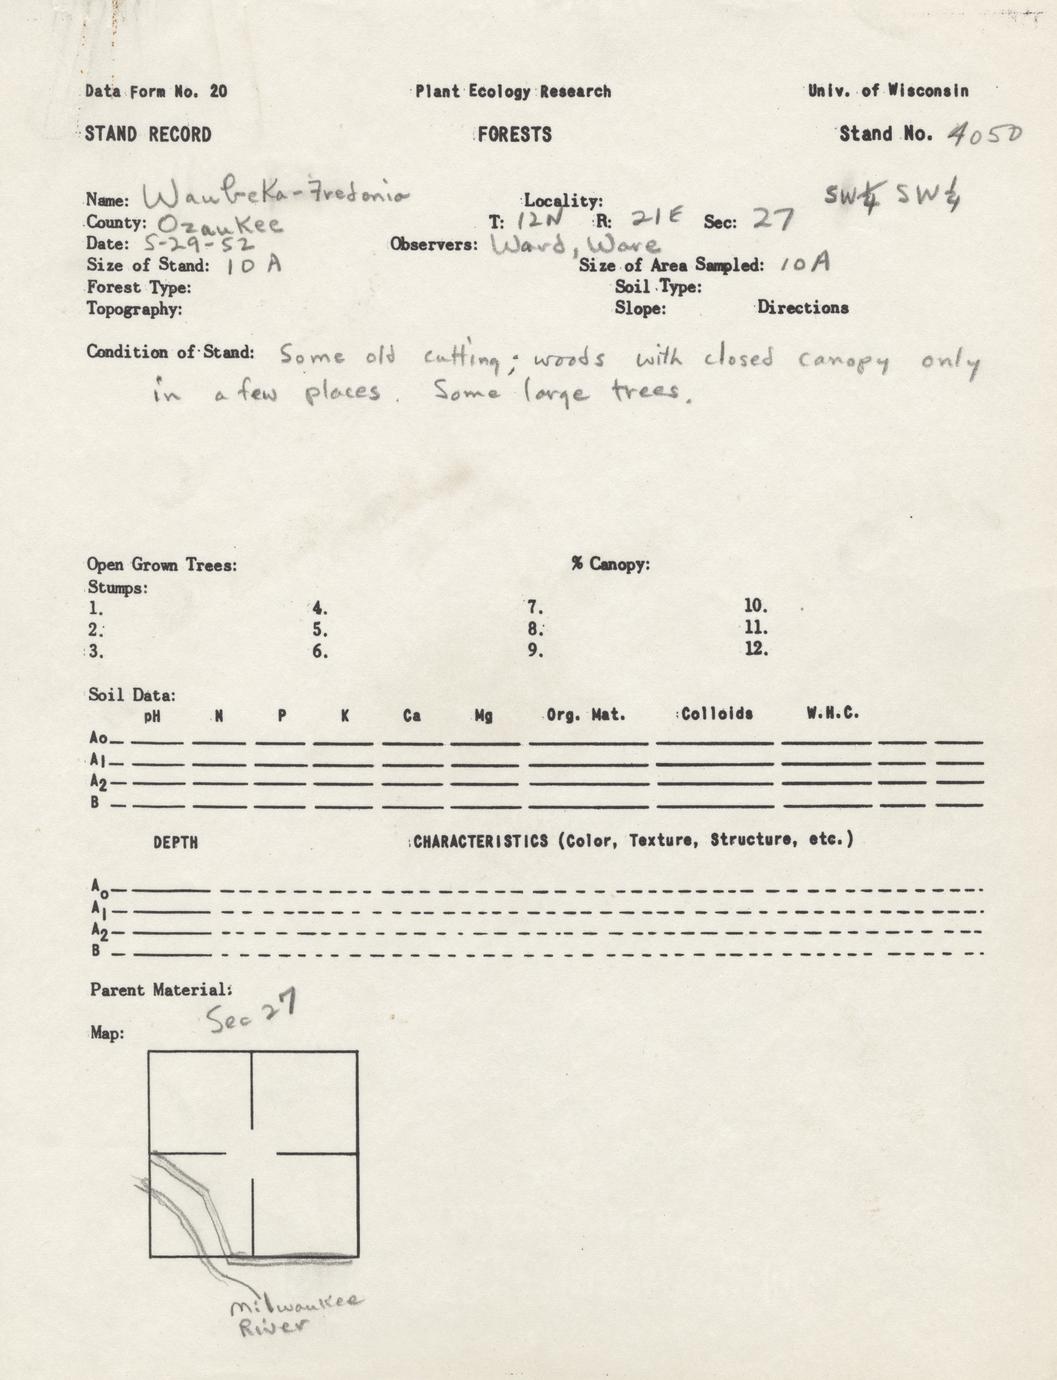 Data Form No. 20 Plant Ecology Research Univ. of Wisconsin
STAND RECORD FORESTS Stand No. 4050
Name: Waubeka-Fredonia Locality: SW¼ SW¼
County: Ozaukee T: 12N R: 21E Sec: 27
Date: 5-29-52 Observers: Ward, Ware
Size of Stand: 10 A Size of Area Sampled: 10A
Forest Type: Soil Type:
Topography: Slope: Directions
Condition of Stand: Some old cutting; woods with closed canopy only
in a few places. Some large trees.
Open Grown Trees: % Canopy:
Stumps:
1. 4. 7. 10.
2. 5. 8. 11.
3. 6. 9. 12.
Soil Data:
pH N P K Ca Mg Org. Mat. Colloids W.H.C.
Ao
A1
A2
B
DEPTH CHARACTERISTICS (Color, Texture, Structure, etc.)
Ao
A1
A2
B
Parent Material:
Sec 27
Map:
Milwaukee
River